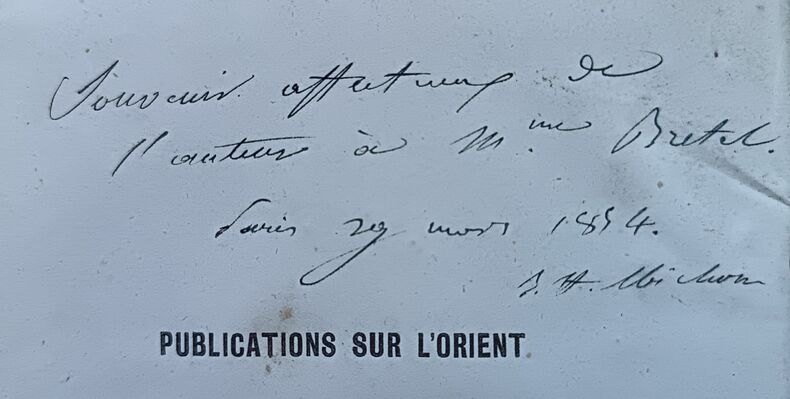 Souvenir affectueux de
l'auteur à Mme Bretel.
Paris 29 mars 1854.
J. H. Michon
PUBLICATIONS SUR L'ORIENT.